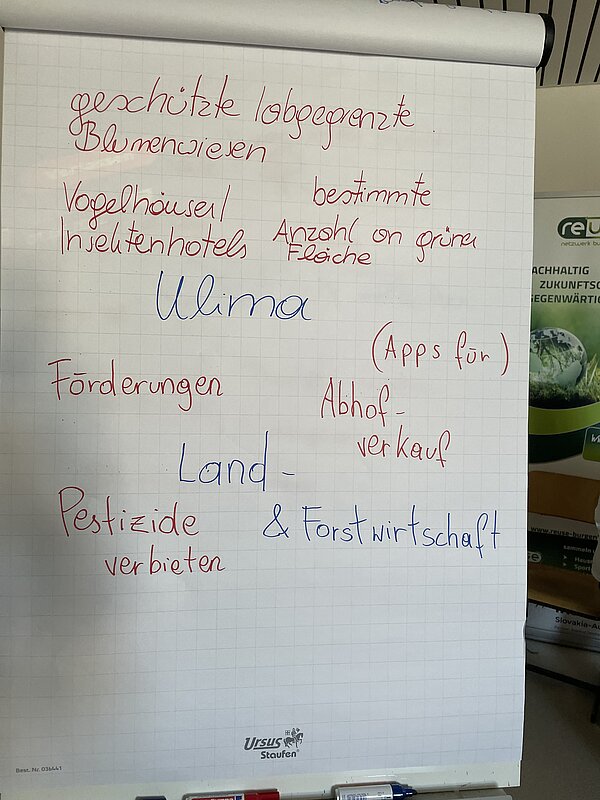 geschützte / abgegrenzte
Blumenwiesen
Vogelhäuser /
Insektenhotels
bestimmte
Anzahl an grüner
Fläche
Klima
(Apps für)
Förderungen
Abhof-
verkauf
Land-
& Forstwirtschaft
Pestizide
verbieten
Ursus
Staufen
Best. Nr. 036441
ACHHALTIG
ZUKUNFTS
EGENWÄRTI
Slovakia-Au